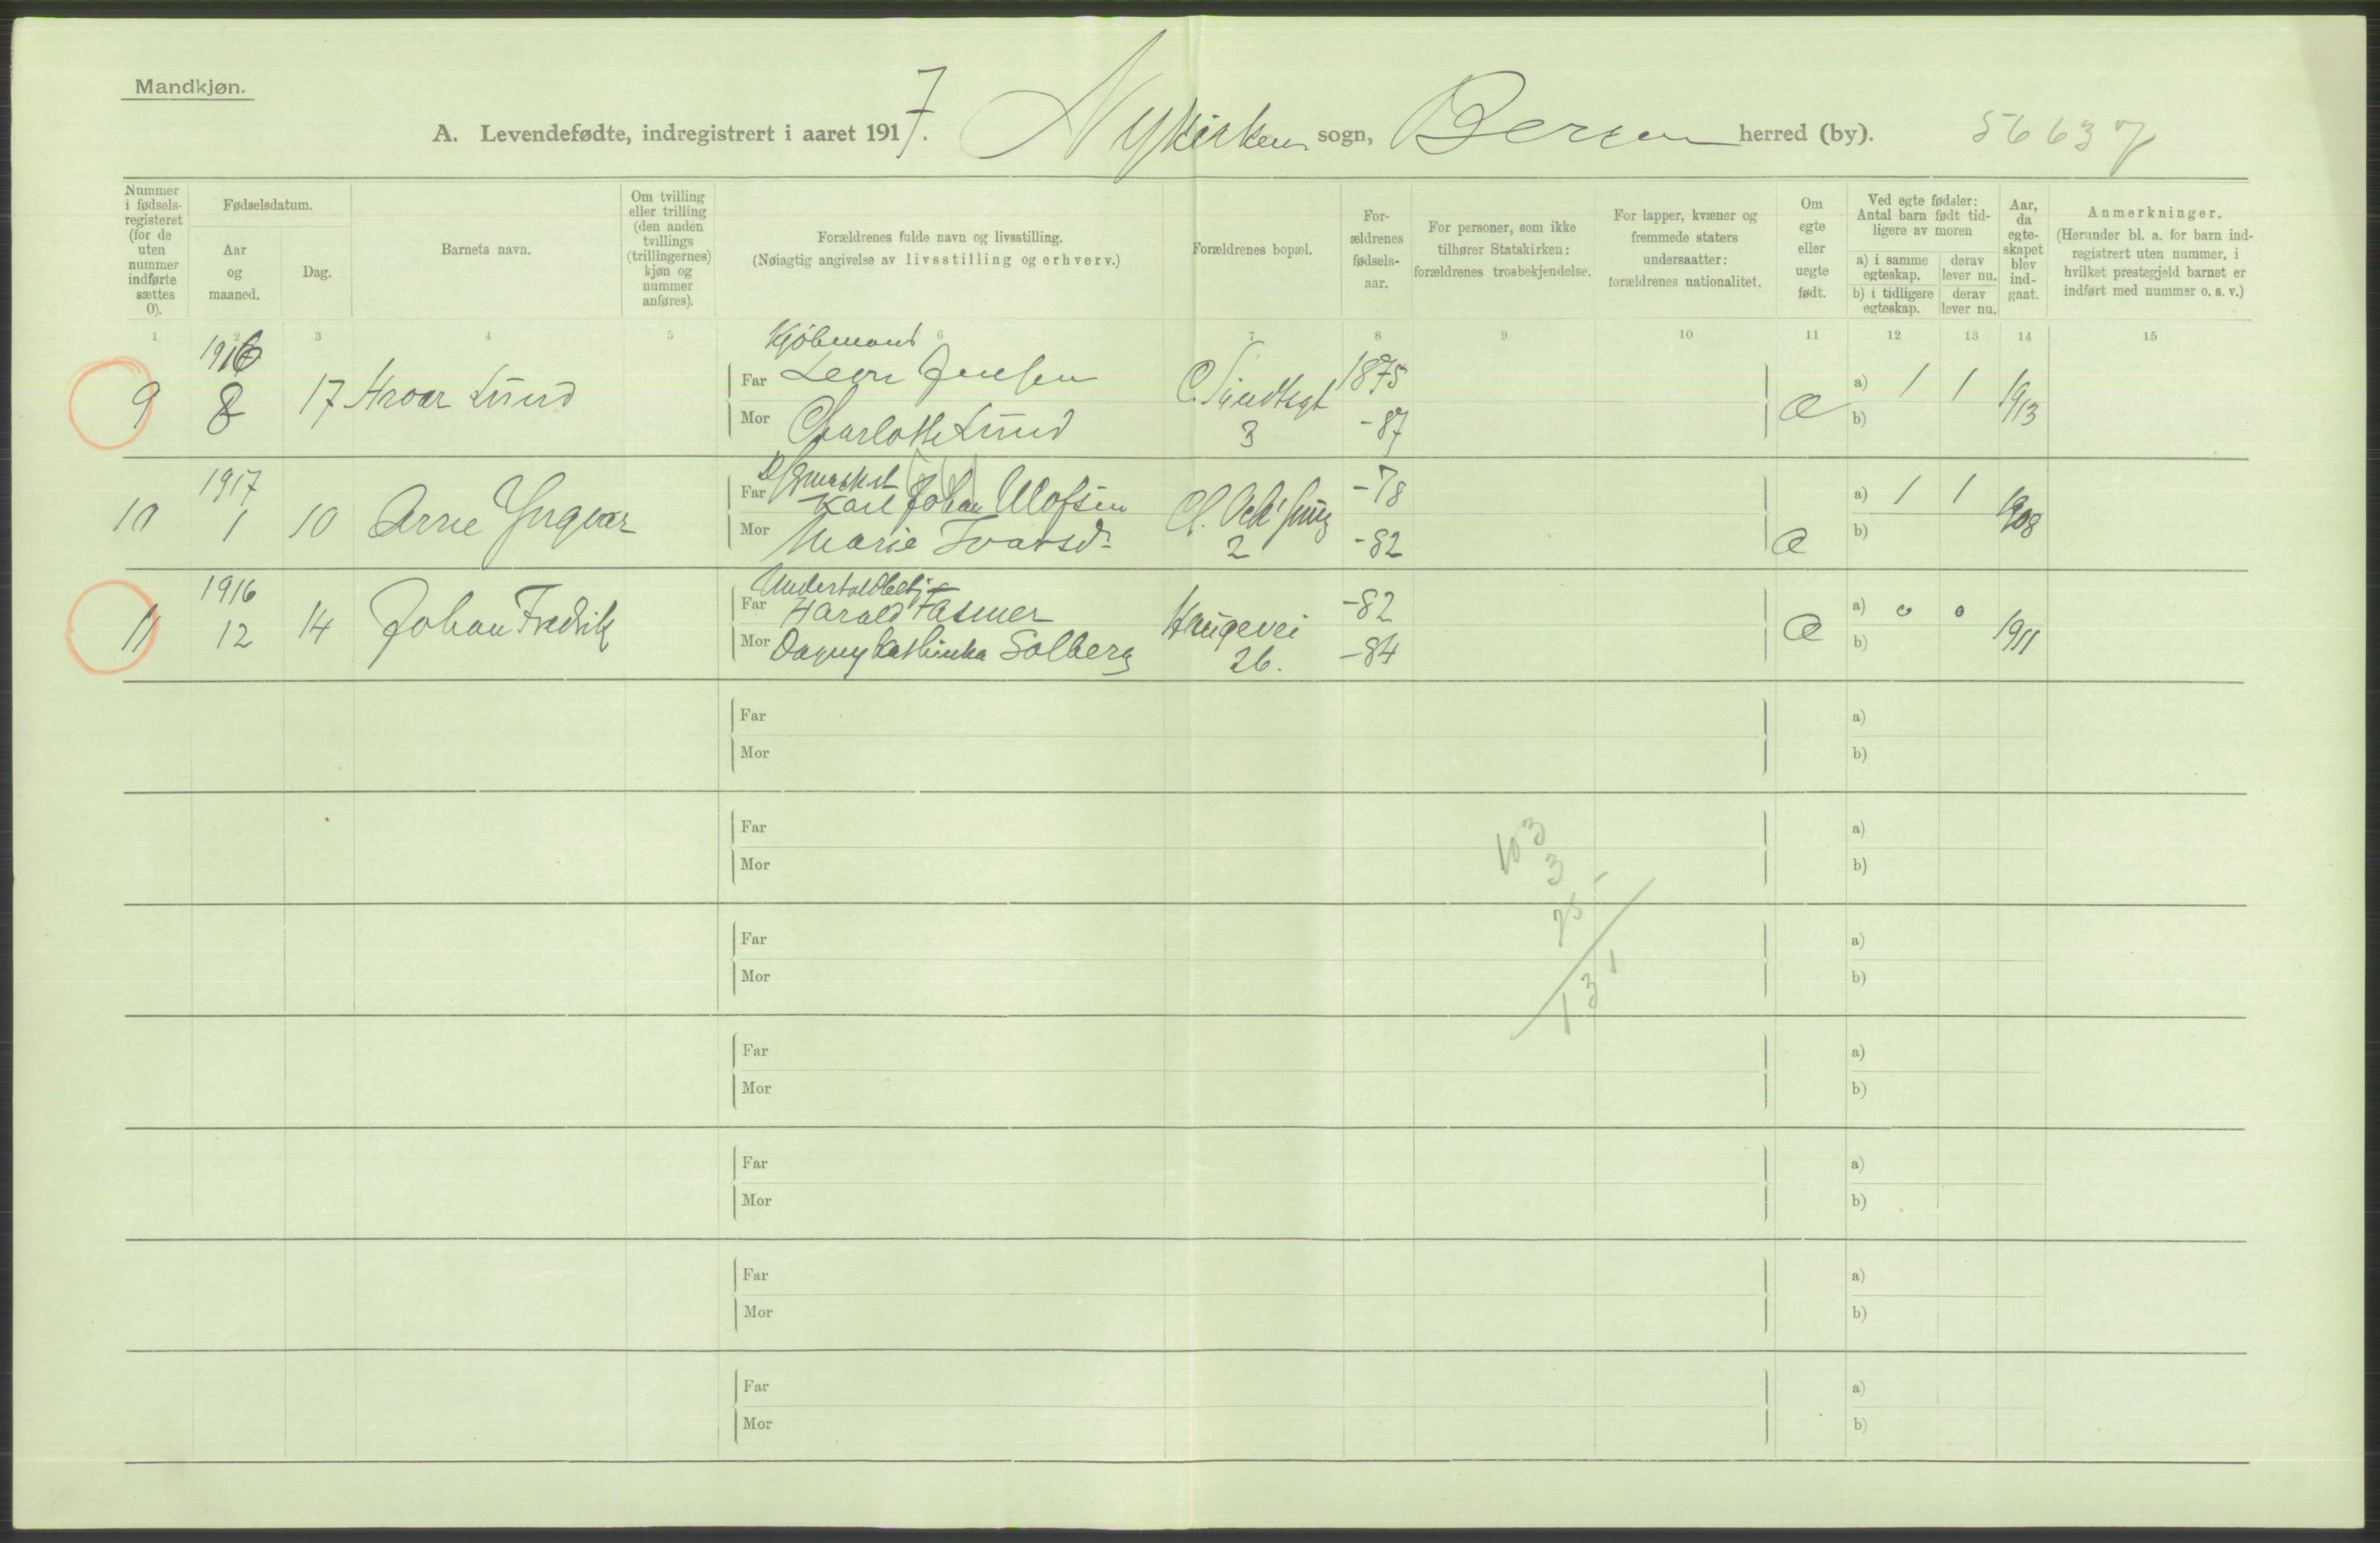 Mandkjøn.
A. Levendefødte, indregistrert i aaret 1917. Nykirken sogn, Bergen herred (by). 56637
Nummer i fødsels-registeret (for de uten nummer indførte sættes 0).
Fødselsdatum.
Aar og maaned.
Dag.
Barnets navn.
Om tvilling eller trilling (den anden tvillings (trillingernes) kjøn og nummer anføres).
Forældrenes fulde navn og livsstilling.
(Nøiagtig angivelse av livsstilling og erhverv.)
Forældrenes bopæl.
For-ældrenes fødsels-aar.
For personer, som ikke tilhører Statskirken: forældrenes trosbekjendelse.
For lapper, kvæner og fremmede staters undersaatter: forældrenes nationalitet.
Om egte eller uegte født.
Ved egte fødsler: Antal barn født tid-ligere av moren
a) i samme egteskap.
derav lever nu.
b) i tidligere egteskap.
derav lever nu.
Aar, da egte-skapet blev ind-gaat.
Anmerkninger.
(Herunder bl. a. for barn ind-registrert uten nummer, i hvilket prestegjeld barnet er indført med nummer o. s. v.)
1 2 3 4 5 6 7 8 9 10 11 12 13 14 15
1916 Kjøbmand
9 8 17 Hroar Lund Far Leon Jensen C. Sundtsgt 3 1875 a) 1 1 1913
Mor Charlotte Lund -87 b)
1917
10 1 10 Arne Yngvar Far Karl Johan Olofsen 2 -78 a) 1 1 1908
Mor Marie Ivarsd. -82 b)
1916
11 12 14 Johan Fredrik Far Harald Fasmer Haugevei 26. -82 a) 0 0 1911
Mor Dagny Kathinka Solberg -84 b)
Far a)
Mor b)
Far a)
Mor b)
103
3
25
131
Far a)
Mor b)
Far a)
Mor b)
Far a)
Mor b)
Far a)
Mor b)
Far a)
Mor b)